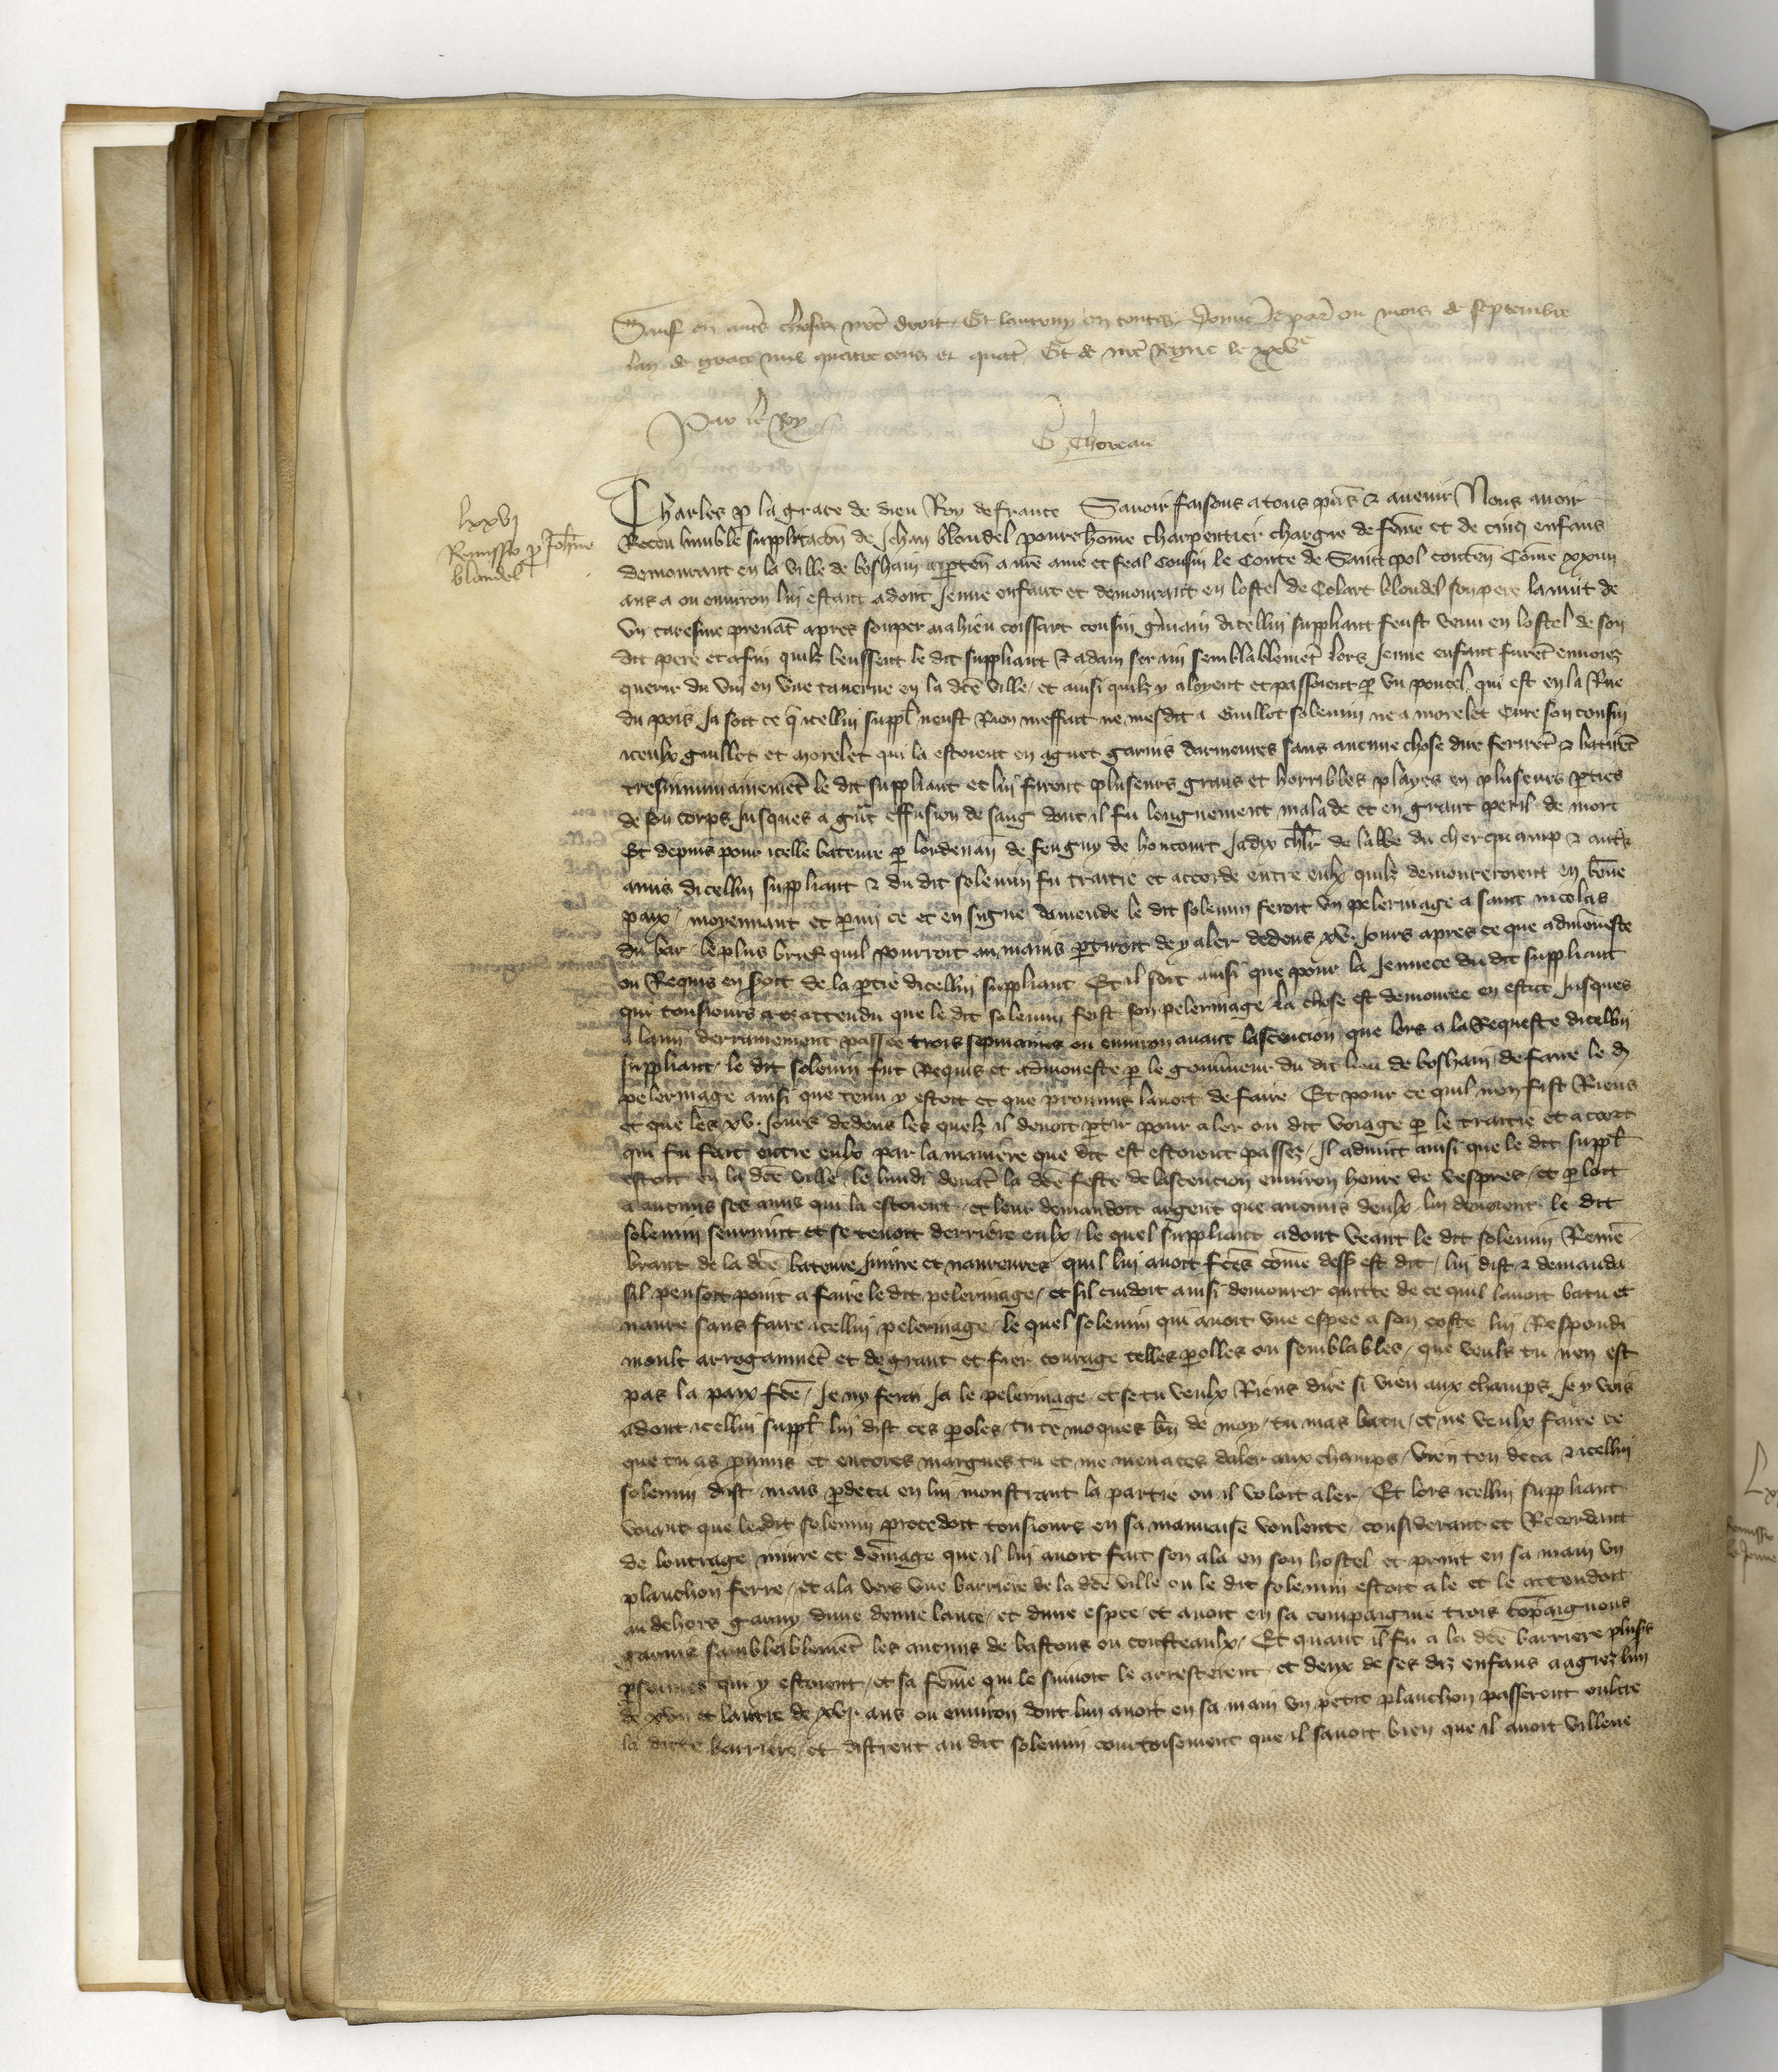 Sauf en autres choses nrē droit Et lautruy en toutes Donné a paris ou mois de septembre
lan de grace mil quatre cens et quatre Et de nrē Regne le xxvᵉ
Par le Roy
G Thoreau
lxxvj
Remissio p Johanne
blondel
Charles p la grace de dieu Roy de france Savoir faisons a tous pns̄ & avenir Nous avoir
Receu lumble supplicacōn de Jehan blondel povre hōme charpentier chargie de fēme et de cinq enfans
demourant en la ville de boshain apparten̄ a nrē ame et feal cousin le Conte de Saint pol conten̄ Cōme xxiiij
ans a ou environ lui estant adont Jenne enfant et demourant en lostel de Colart blondel son pere la nuit de
un caresme prenāt apres souper mahieu coissart cousin gmain dicellui suppliant feust venu en lostel de son
dit pere et afin quilz beussent le dit suppliant & adam serain semblablemēt lors Jenne enfant furēt envoiez
querir du vin en une taverne en la dcē ville / et ainsi quilz y aloyent et passoient p un poncel qui est en la Rue
du pois Ja soit ce q icellui suppl neust Rien meffait ne mesdit a Guillot solemin ne a morelet Cure son cousin
iceulx guillot et morelet qui la estoient en aguet garnis darmeures sans aucune chose dire ferirēt & batirēt
tresinhumainemēt le dit suppliant et lui firent pluseurs grans et horribles playes en pluseurs pties
de son corps Jusques a grāt effusion de sang dont il fu longuement malade et en grant peril de mort
Et depuis pour icelle bateure p lordenan de feuguy de honcourt Jadix chlr de labbe du cherquamp & autres
amis dicellui suppliant & du dit solemin fu traitie et accorde entre eulx quilz demourroient en bōne
paix / moyennant et pmi ce et en signe damende le dit solemin feroit un pelerinage a saint nicolas
du bar le plus brief quil pourroit au mains ptiroit de y aler dedens xv. Jours apres ce que admōneste
ou Requis en soit de la ptie dicellui suppliant Et il soit ainsi que pour la Jennece du dit suppliant
qui tousiours a attendu que le dit solemin feist son pelerinage la chose est demouree en estat Jusques
a lann derrainement passee trois sepmaines ou environ avant lascencion / que lors a la Requeste dicellui
suppliant le dit solemin fut Requis et admoneste p le gouvneur du dit lieu de boshain de faire le d
pelerinage ainsi que tenu y estoit et que promis lavoit de faire Et pour ce quil non fist Riens
et que les xv. Jours dedens les quelz il devoit ptir pour aler ou dit voiage p le traitie et acort
qui fu fait entre eulx par la maniere que dit est estoient passez / Il advint ainsi que le dit suppl
estoit en la dcē ville le lundi devāt la dcē feste de lascencion environ heure de vespres / et ploit
a aucuns ses amis qui la estoient / et leur demandoit argent que aucuns deulx lui devoient le dit
solemin seurvint et se tenoit derriere eulx / le quel suppliant adont veant le dit solemin Remē
brant de la dcē bateure Injure et navreures quil lui avoit fcēs cōme dess est dit / lui dist & demanda
sil pensoit point a faire le dit pelerinage / et sil cuidoit ainsi demourer quitte de ce quil lavoit batu et
navre sans faire icellui pelerinage / le quel solemin qui avoit une espee a son coste lui Respondi
moult arrogamment et de grant et fier courage telles polles ou semblables / que veuls tu nen est
pas la paix fcē / Je ny feray Ja le pelerinage / et se tu veulx Riens dire si vien aux champs Je y vois
adont icellui suppl lui dist ces poles / tu te moques bn̄ de moy / tu mas batu / et ne veulx faire ce
que tu as pmis et encores margues tu et me menaces daler aux champs / vien ten deca & icellui
solemin dist mais pdeca en lui monstrant la partie ou il voloit aler / Et lors icellui suppliant
voiant que ledit solemin procedoit tousiours en sa mauvaise voulente / considerant et Recordant
de loutrage injure et dōmage que il lui avoit fait sen ala en son hostel et print en sa main un
planchon ferre / et ala vers une barriere de la dcē ville ou le dit solemin estoit ale et le attendoit
au dehors garny dune demie lance / et dune espee / et avoit en sa compaignie trois cōpaignons
garnis samblablemēt les aucuns de bastons ou cousteaulx / Et quant il fu a la dcē barriere plusrs
psonnes qui y estoient / et sa fēme qui le suivoit le arresterent et deux de ses diz enfans aagiez lun
de xviij et lautre de xvj. ans ou environ dont lun avoit en sa main un petit planchon passerent oultre
la dicte barriere / et distrent au dit solemin courtoisement que il savoit bien que il avoit villene